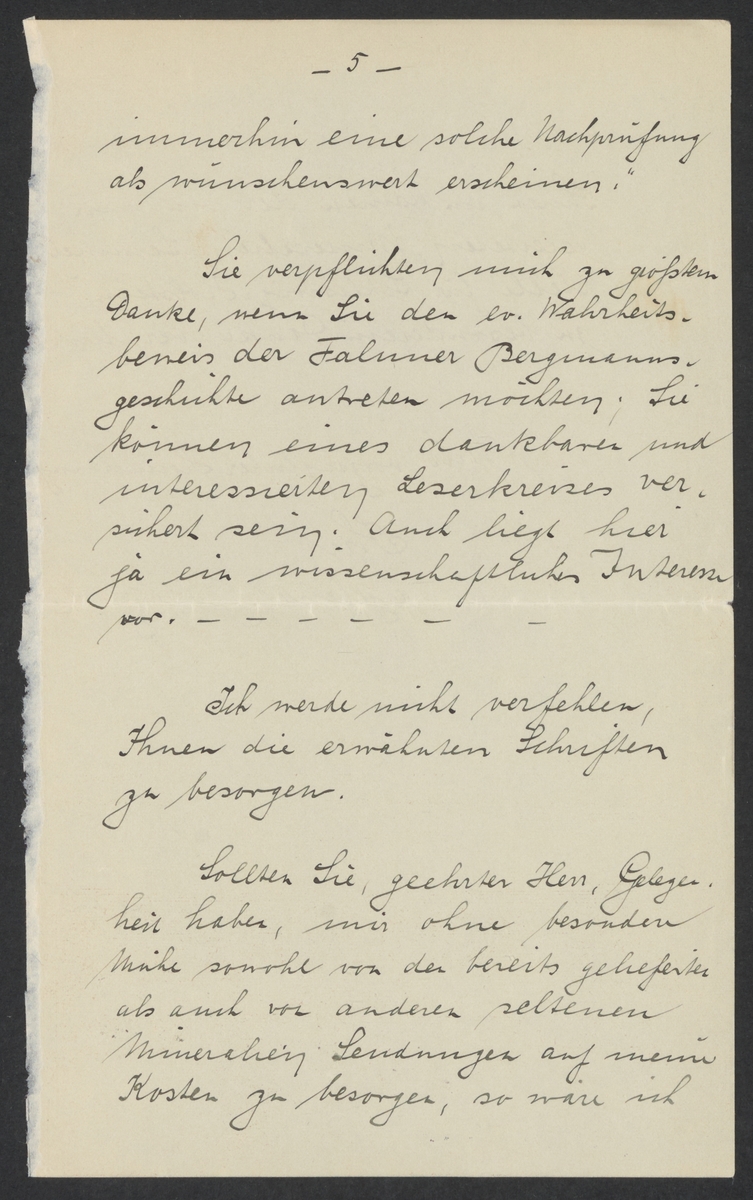 – 5 –
immerhin eine solche Nachprüfung
als wünschenswert erscheinen."
Sie verpflichten mich zu größtem
Danke, wenn Sie den ev. Wahrheits-
beweis der Faluner Bergmanns-
geschichte antreten möchten; Sie
können eines dankbaren und
interessierten Leserkreises ver-
sichert sein. Auch liegt hier
ja ein wissenschaftliches Interesse
vor. – – – – – –
Ich werde nicht verfehlen,
Ihnen die erwähnten Schriften
zu besorgen.
Sollten Sie, geehrter Herr, Gelegen-
heit haben, mir ohne besondere
Mühe sowohl von den bereits gelieferten
als auch von anderen seltenen
Mineralien Sendungen auf meine
Kosten zu besorgen, so wäre ich